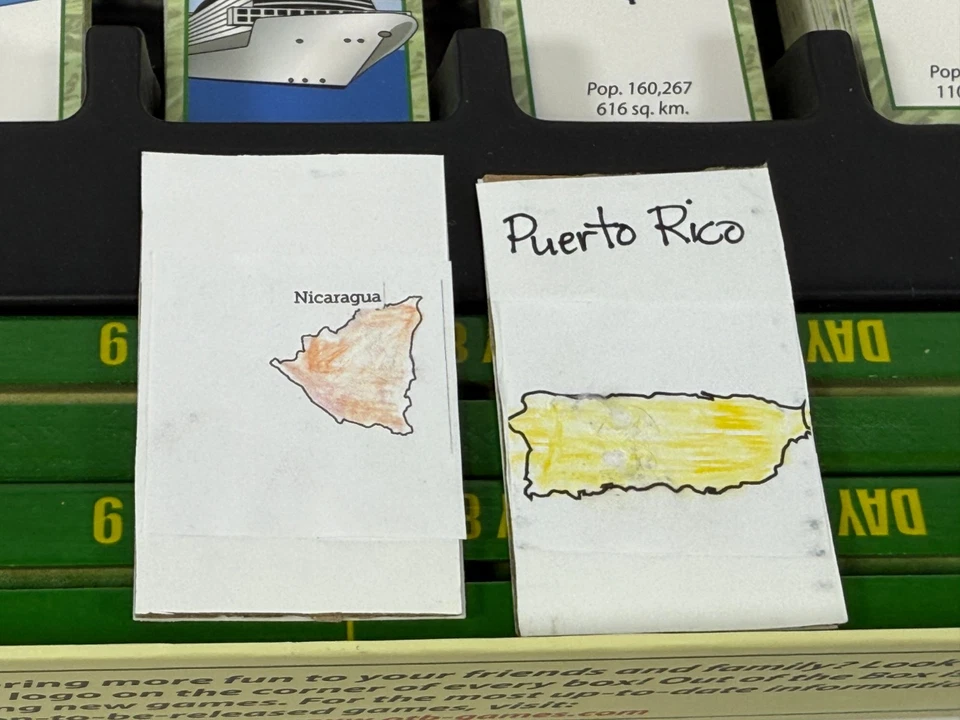 Pop. 160,267
616 sq. km.
Pop
110
Puerto Rico
Nicaragua
6
8
DAY
6
8
DAY
ring more fun to your friends and family? Look
logo on the corner of every box! Out of the Box
ng new games. For the most up-to-date informati
n-to-be-released games, visit:
otb-games.com